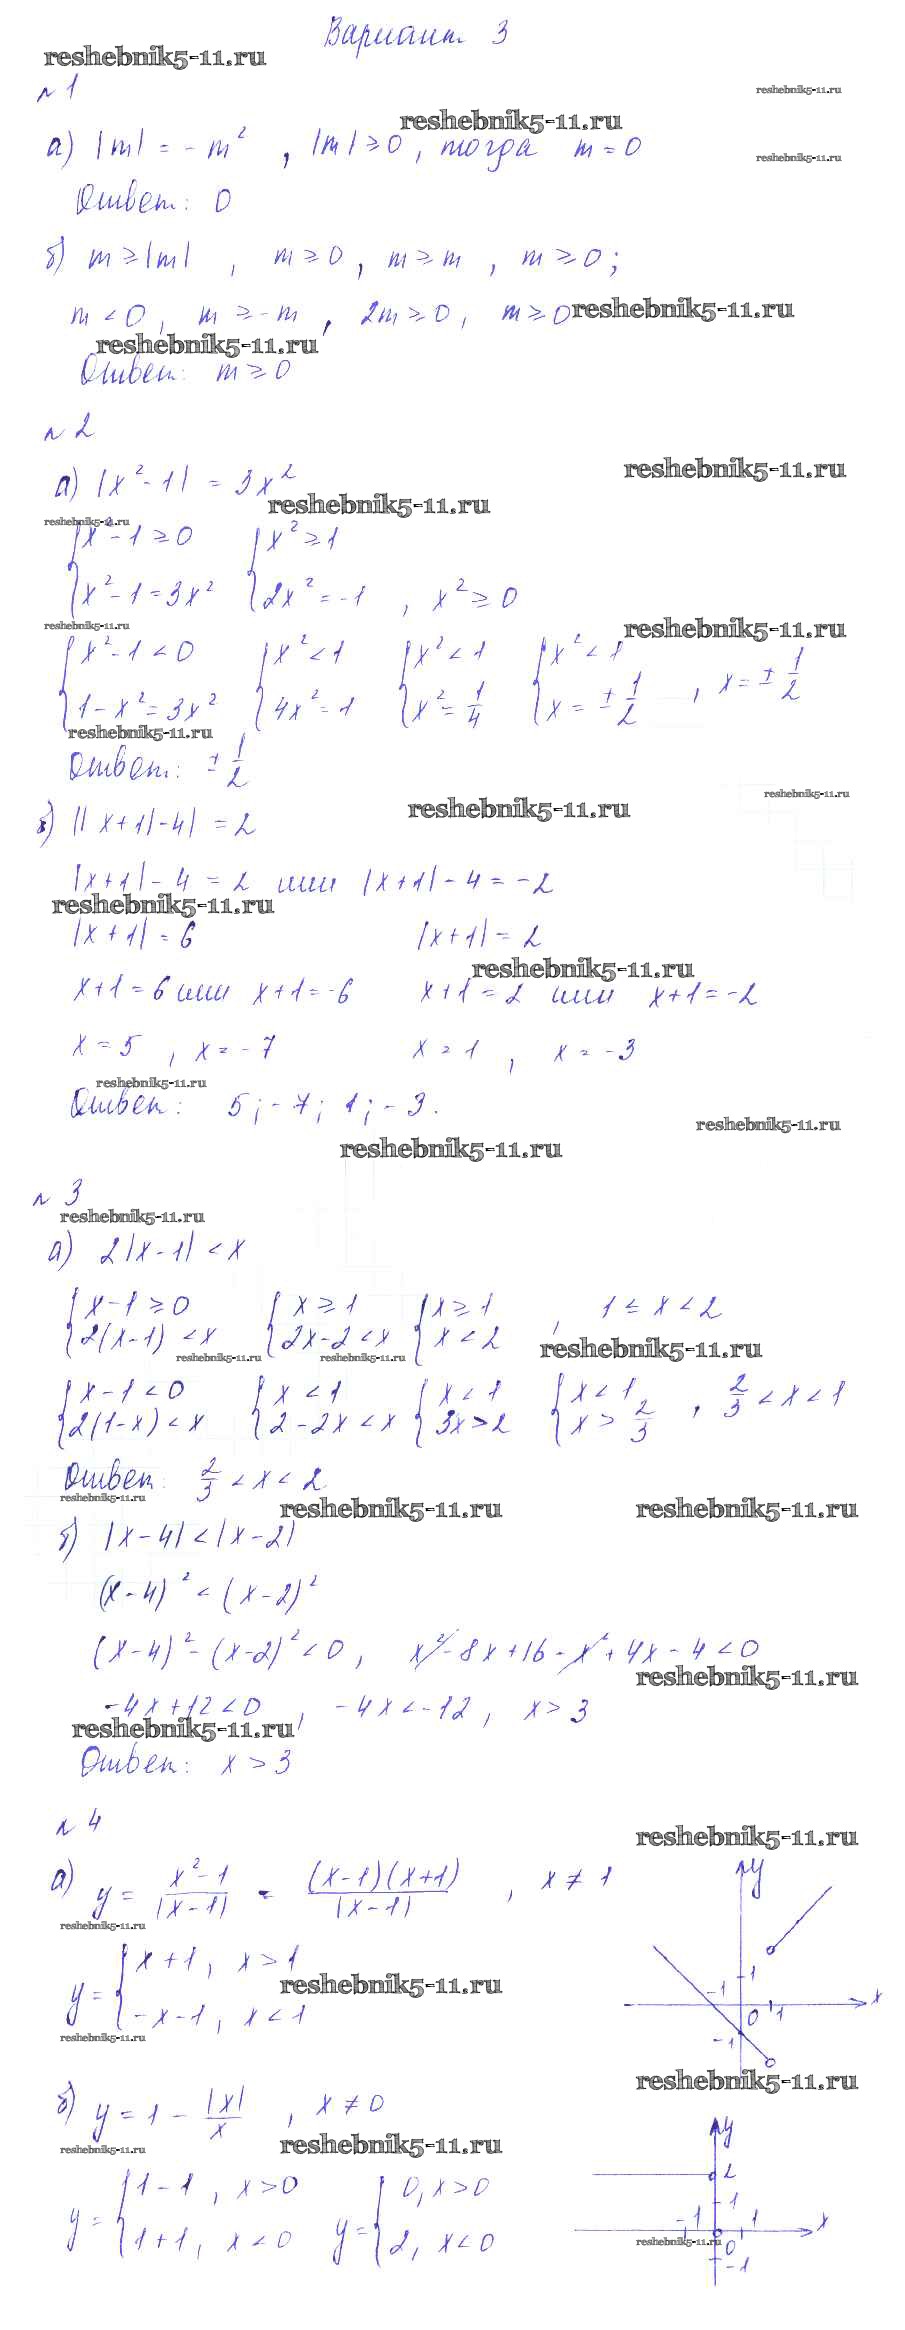 Вариант 3
reshebnik5-11.ru
№1
reshebnik5-11.ru
reshebnik5-11.ru
а) |m| = -m², |m| ≥ 0, тогда m = 0
reshebnik5-11.ru
Ответ: 0
б) m ≥ |m|, m ≥ 0, m ≥ m, m ≥ 0;
m < 0, m ≥ -m, 2m ≥ 0, m ≥ 0
reshebnik5-11.ru
reshebnik5-11.ru
Ответ: m ≥ 0
№2
reshebnik5-11.ru
а) |x²-1| = 3x²
reshebnik5-11.ru
reshebnik5-11.ru
{ x²-1 ≥ 0 { x² ≥ 1
{ x²-1 = 3x² { 2x² = -1, x² ≥ 0
reshebnik5-11.ru
reshebnik5-11.ru
{ x²-1 < 0 { x² < 1 { x² < 1 { x² < 1
{ 1-x² = 3x² { 4x² = 1 { x² = 1/4 { x = ± 1/2, x = ± 1/2
reshebnik5-11.ru
Ответ: ± 1/2
reshebnik5-11.ru
reshebnik5-11.ru
б) ||x+1|-4| = 2
|x+1|-4 = 2 или |x+1|-4 = -2
reshebnik5-11.ru
|x+1| = 6 |x+1| = 2
reshebnik5-11.ru
x+1 = 6 или x+1 = -6 x+1 = 2 или x+1 = -2
x = 5, x = -7 x = 1, x = -3
reshebnik5-11.ru
Ответ: 5; -7; 1; -3.
reshebnik5-11.ru
reshebnik5-11.ru
№3
reshebnik5-11.ru
а) 2|x-1| < x
{ x-1 ≥ 0 { x ≥ 1 { x ≥ 1, 1 ≤ x < 2
{ 2(x-1) < x { 2x-2 < x { x < 2
reshebnik5-11.ru
reshebnik5-11.ru
reshebnik5-11.ru
{ x-1 < 0 { x < 1 { x < 1 { x < 1, 2/3 < x < 1
{ 2(1-x) < x { 2-2x < x { 3x > 2 { x > 2/3
Ответ: 2/3 < x < 2
reshebnik5-11.ru
reshebnik5-11.ru
reshebnik5-11.ru
б) |x-4| < |x-2|
(x-4)² < (x-2)²
(x-4)² - (x-2)² < 0, x² - 8x + 16 - x² + 4x - 4 < 0
reshebnik5-11.ru
-4x + 12 < 0, -4x < -12, x > 3
reshebnik5-11.ru
Ответ: x > 3
№4
reshebnik5-11.ru
а) y = x²-1/|x-1| = (x-1)(x+1)/|x-1|, x ≠ 1
reshebnik5-11.ru
y = { x+1, x > 1
{ -x-1, x < 1
reshebnik5-11.ru
reshebnik5-11.ru
y
1
-1
x
0
1
-1
reshebnik5-11.ru
б) y = 1 - |x|/x, x ≠ 0
reshebnik5-11.ru
reshebnik5-11.ru
y = { 1-1, x > 0 y = { 0, x > 0
{ 1+1, x < 0 { 2, x < 0
y
2
1
-1
1
x
reshebnik5-11.ru
0
-1